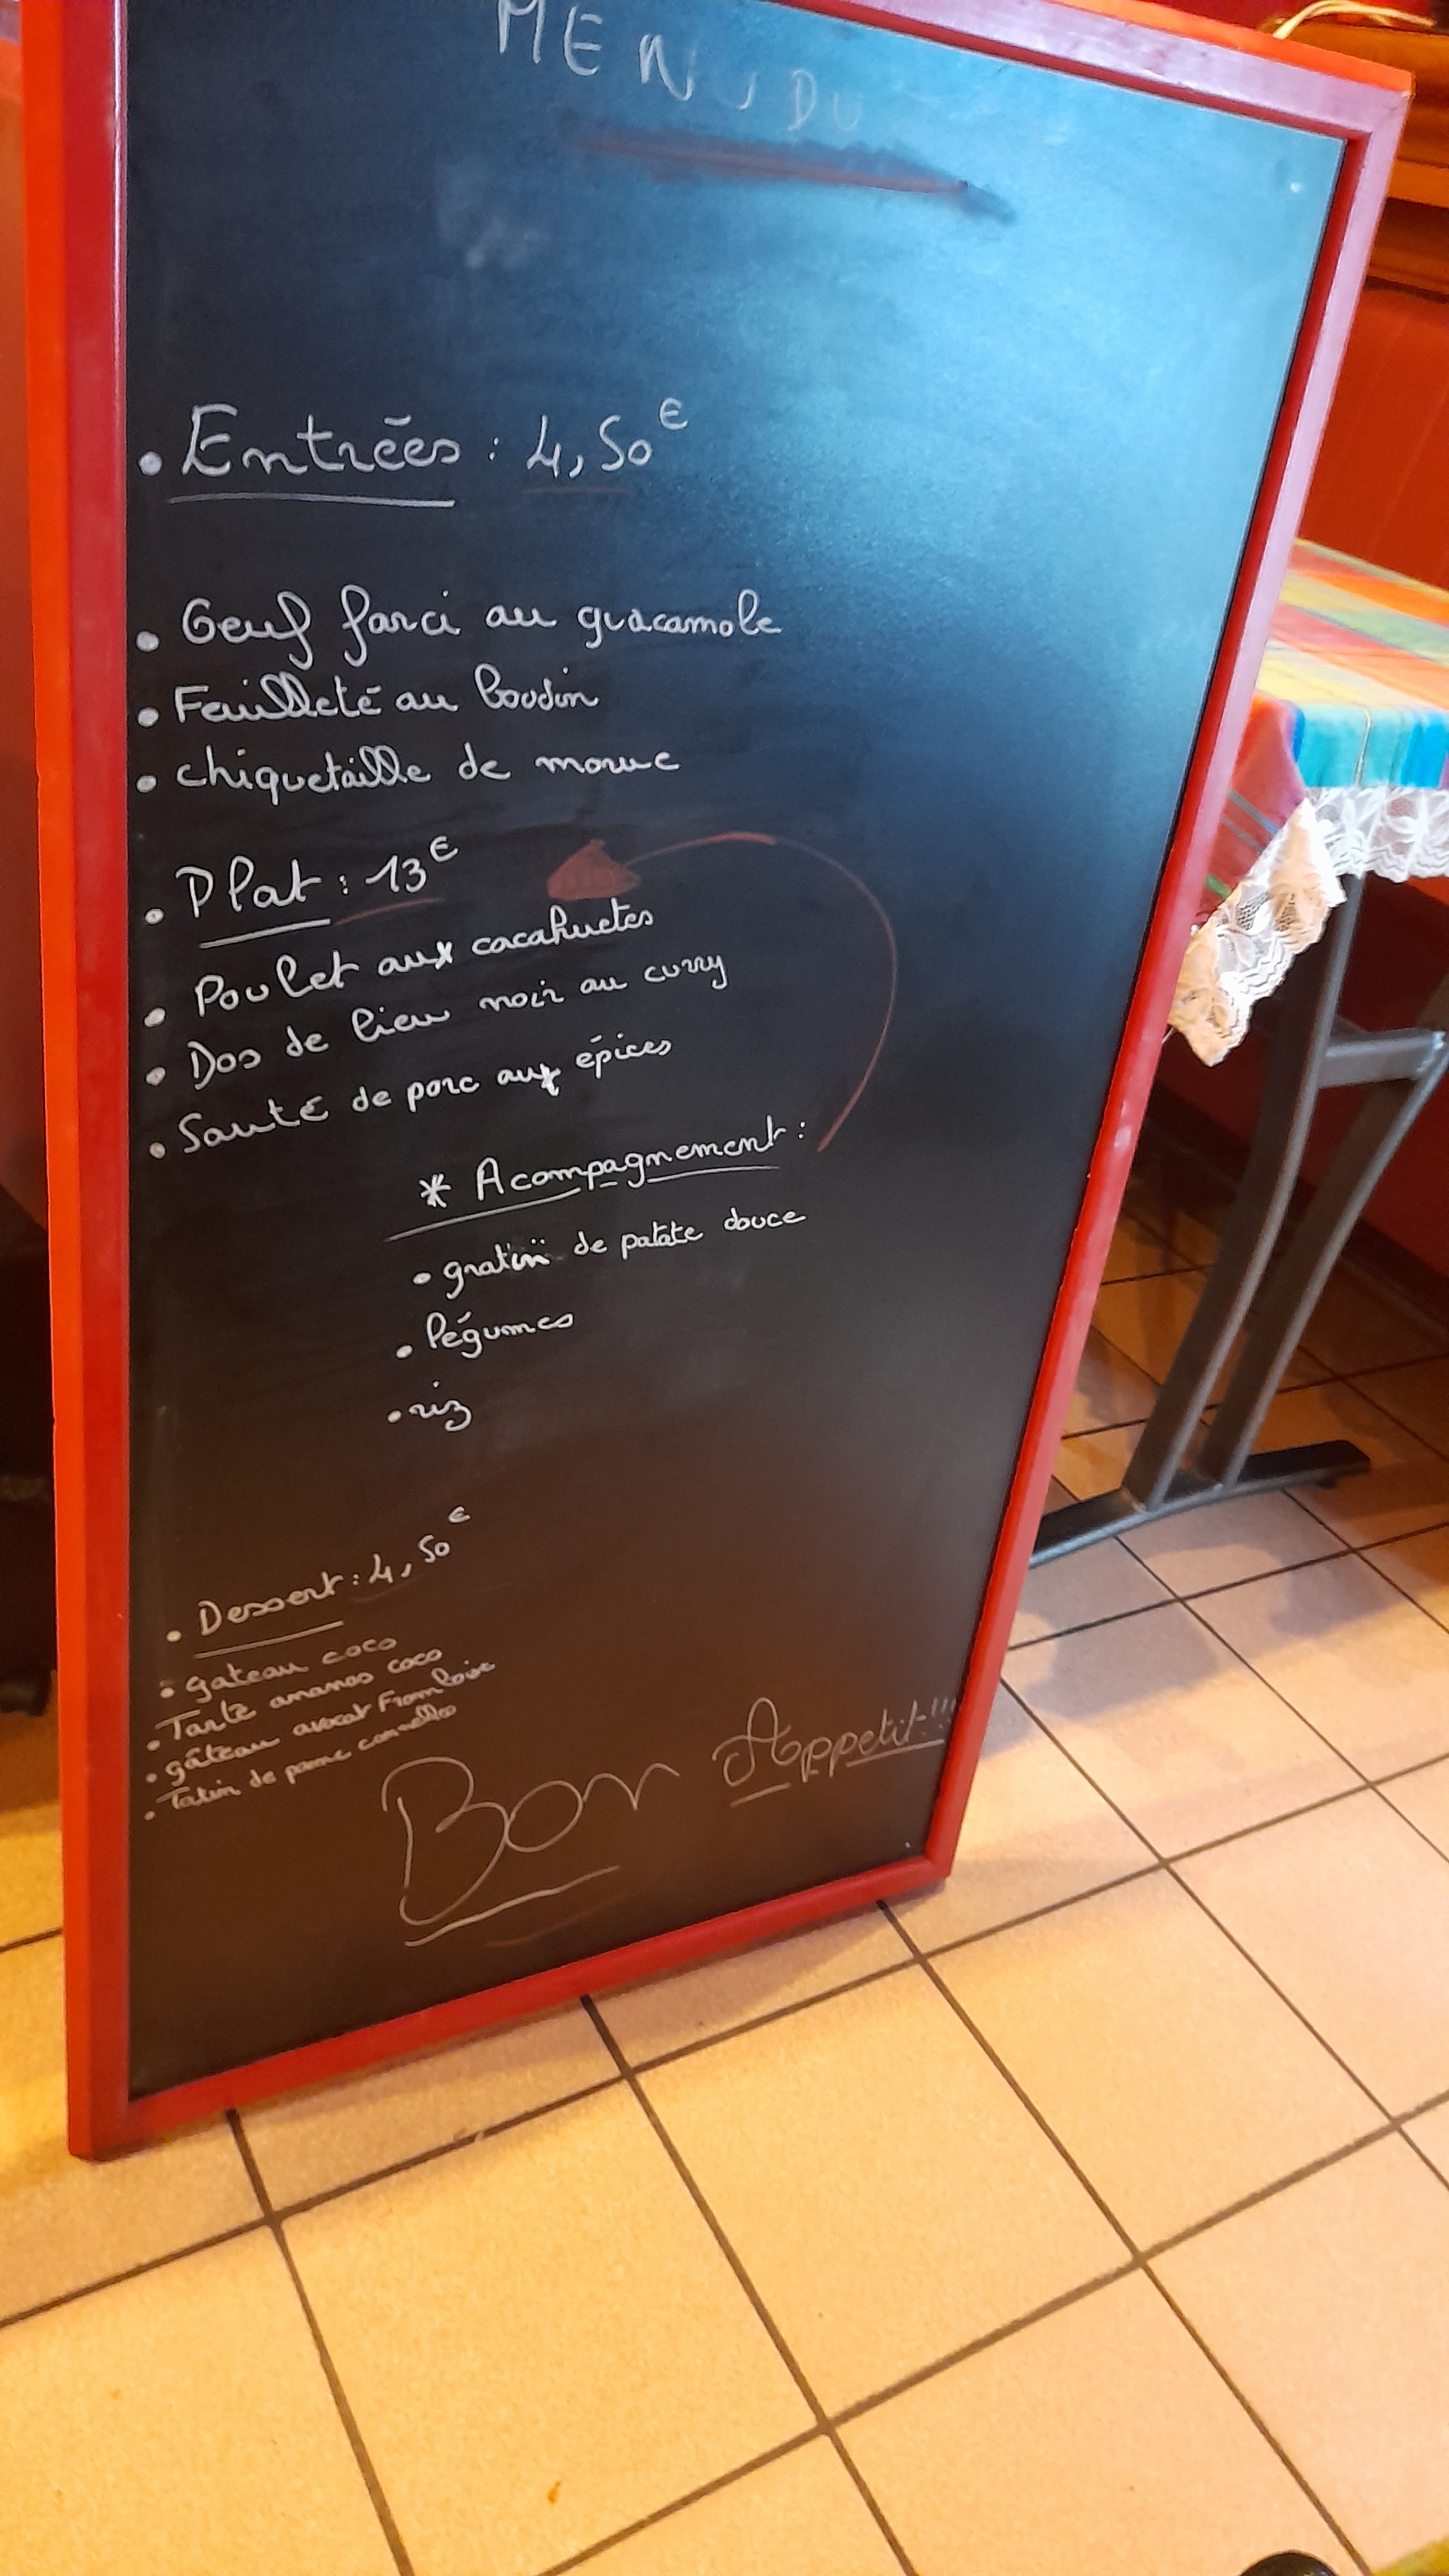 MENU DU
• Entrées : 4,50€
• Oeuf farci au guacamole
• Feuilleté au boudin
• chiquetaille de morue
• Plat : 13€
• Poulet aux cacahuetes
• Dos de lieu noir au curry
• Sauté de porc aux épices
* Acompagnement :
• gratin de patate douce
• légumes
• riz
• Dessert : 4,50€
• gateau coco
• Tarte ananas coco
• gâteau avocat Framboise
• Tatin de pomme cannelles
Bon Appetit !!!